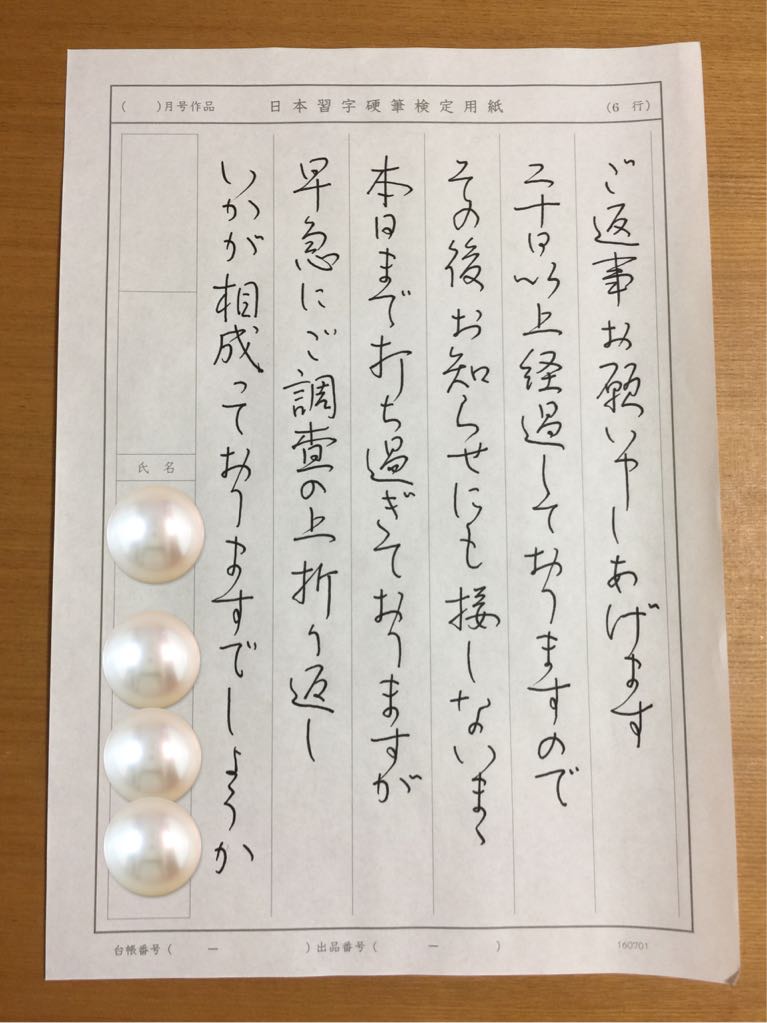 ( )月号作品 日本習字硬筆検定用紙 (6 行)
ご返事お願い申しあげます
二十日以上経過しておりますので
その後お知らせにも接しないまゝ
本日まで打ち過ぎておりますが
早急にご調査の上折り返し
いかが相成っておりますでしょうか
氏名
台帳番号( ー )出品番号( ー )
160701